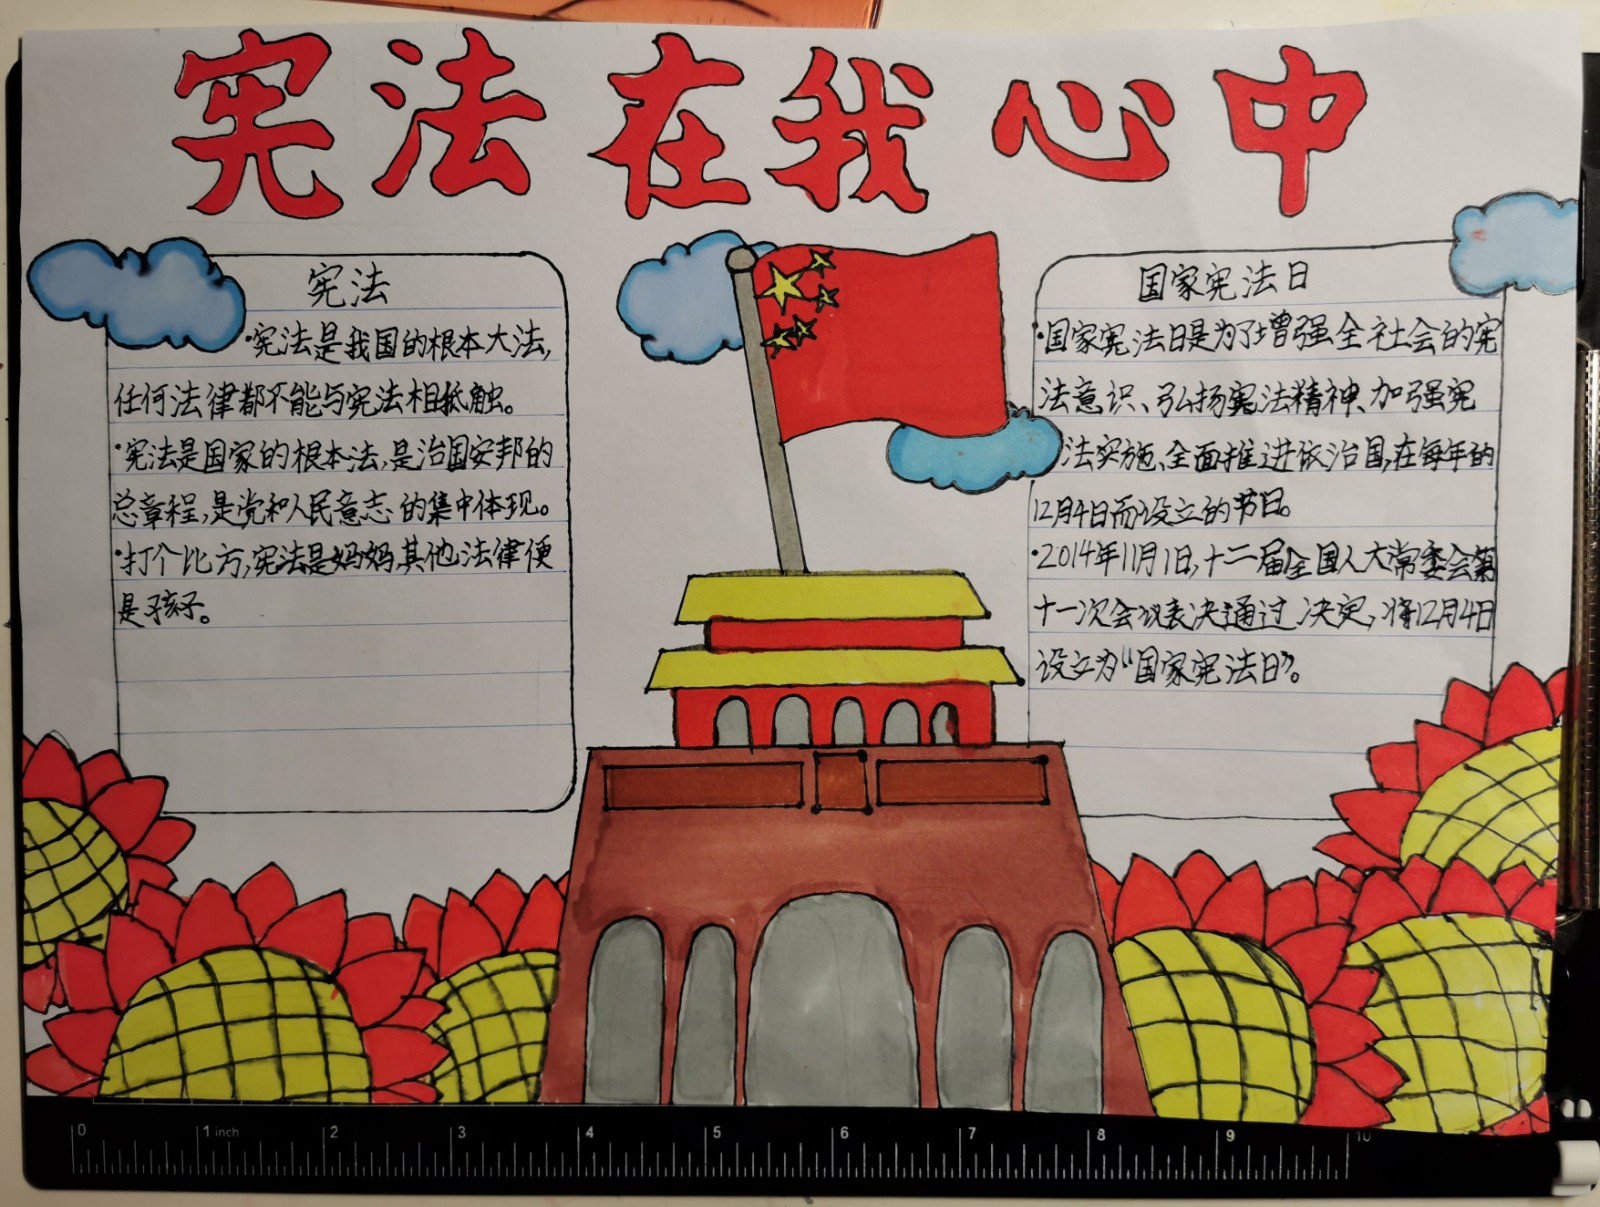 宪法在我心中
宪法
·宪法是我国的根本大法,
任何法律都不能与宪法相抵触。
·宪法是国家的根本法,是治国安邦的
总章程,是党和人民意志的集中体现。
·打个比方,宪法是妈妈,其他法律便
是孩子。
国家宪法日
·国家宪法日是为了增强全社会的宪
法意识、弘扬宪法精神、加强宪
法实施、全面推进依治国,在每年的
12月4日而设立的节日。
·2014年11月1日,十二届全国人大常委会第
十一次会议表决通过决定,将12月4日
设立为“国家宪法日”。
0 1 inch 2 3 4 5 6 7 8 9 10